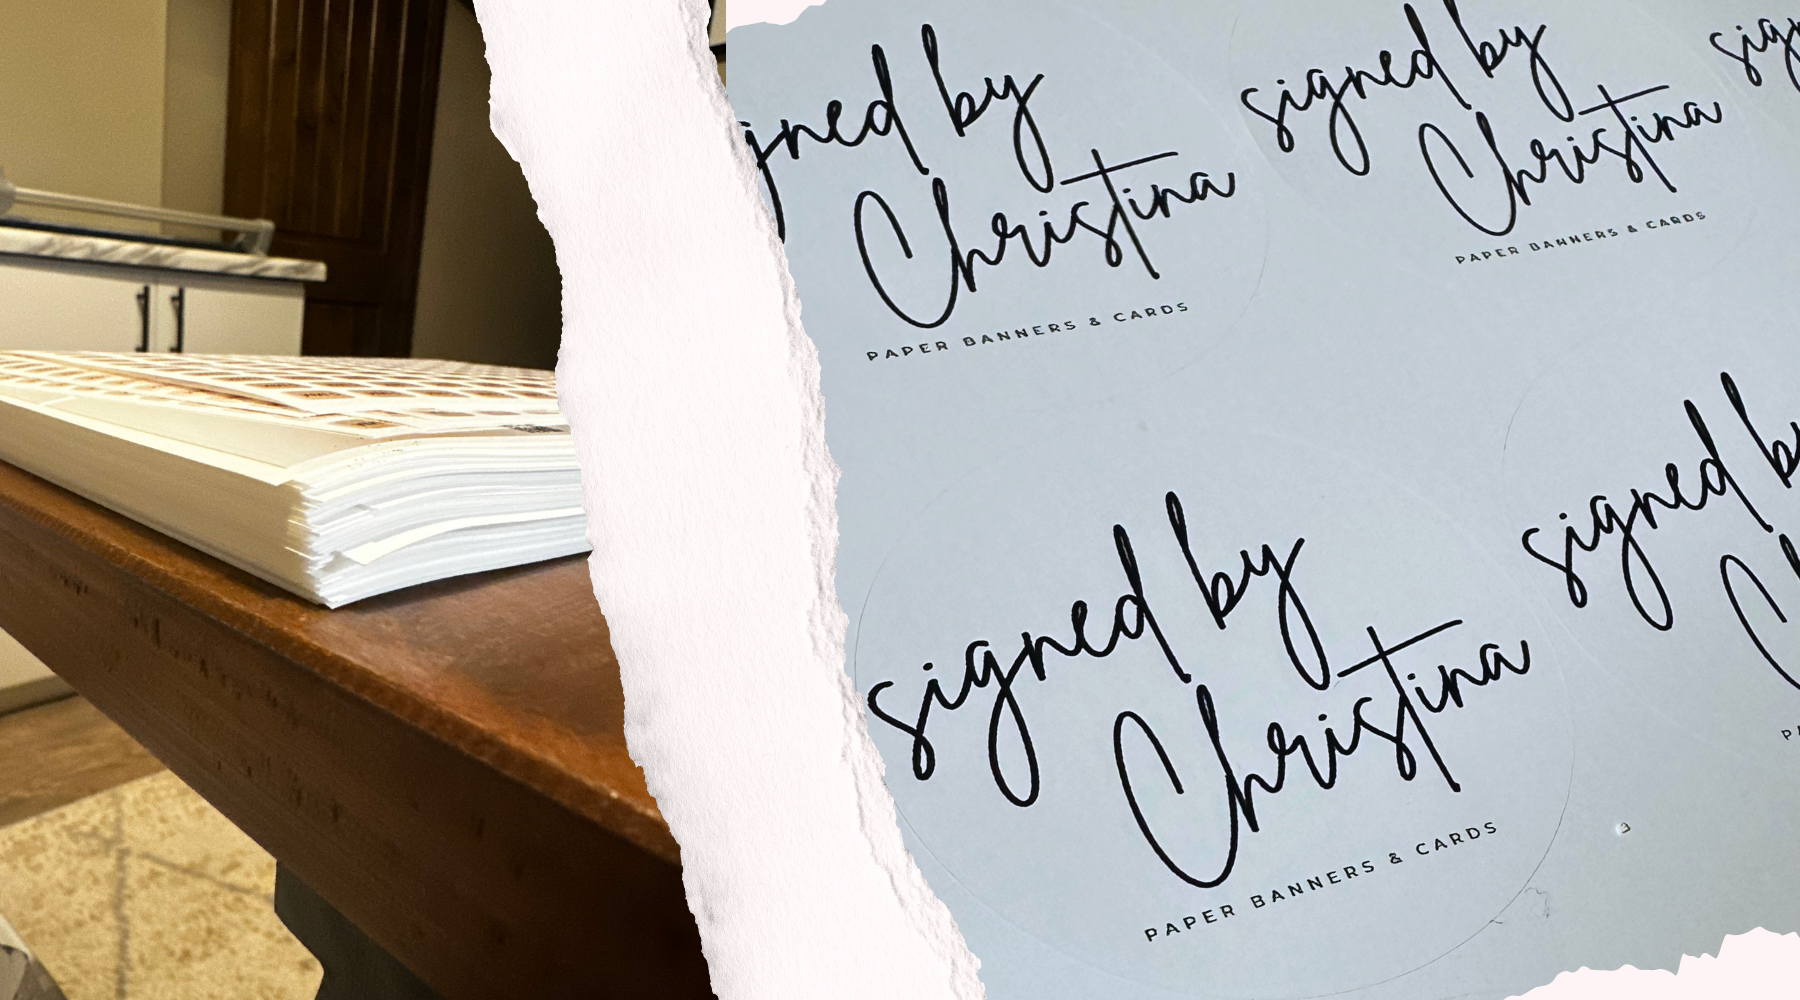 gned by
Christina
PAPER BANNERS & CARDS
signed by
Christina
PAPER BANNERS & CARDS
sig
signed by
Christina
PAPER BANNERS & CARDS
signed by
C
P